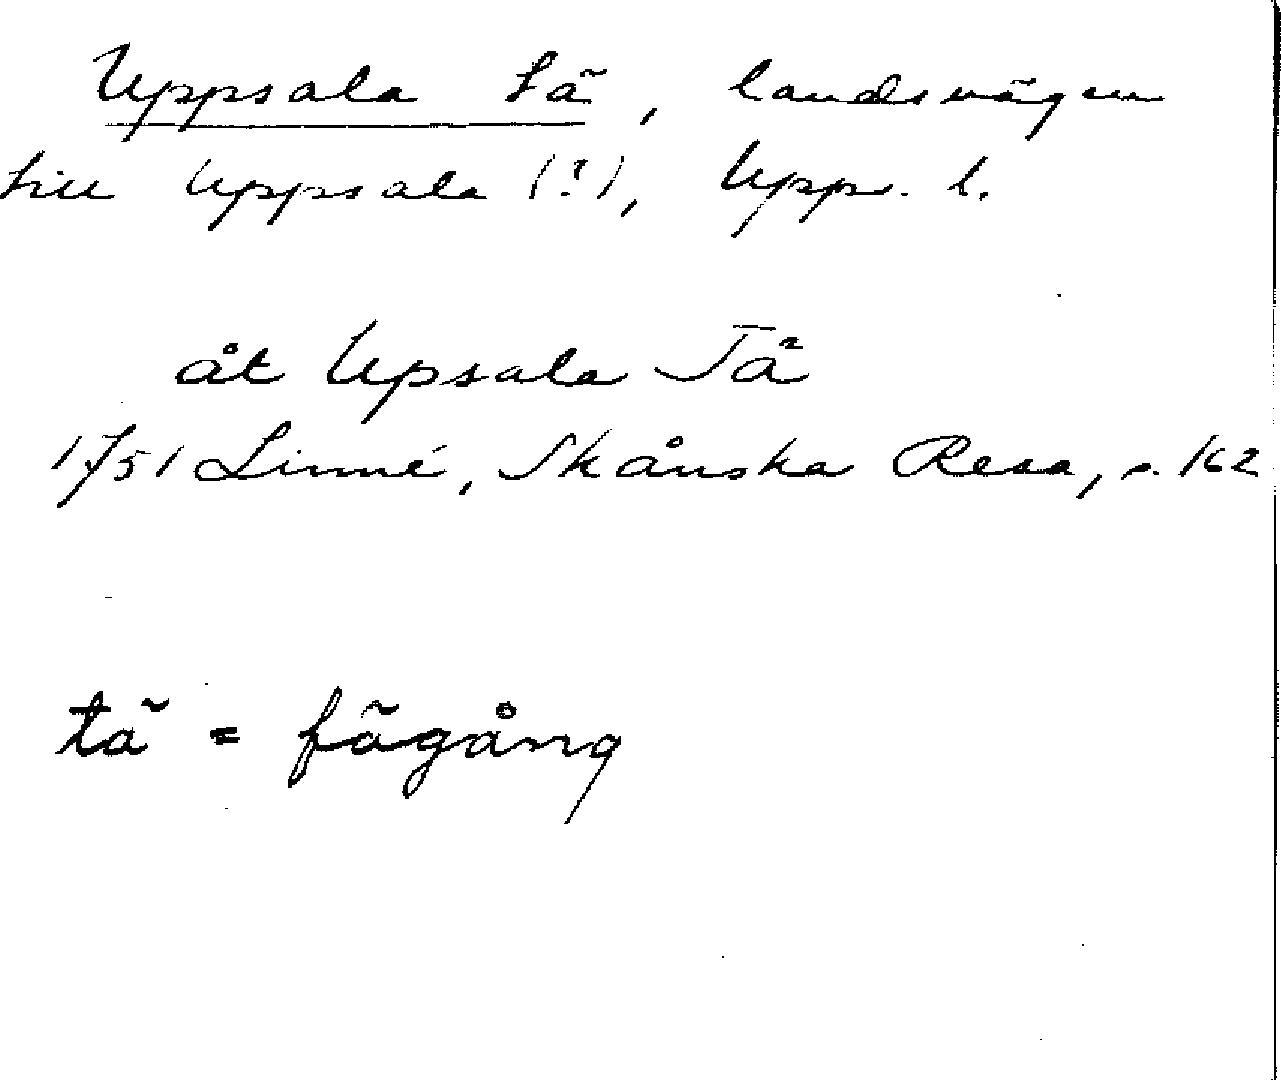 Uppsala tä, landsvägen
till Uppsala (?), Upps. l.
åt Upsala Tå
1751 Linné, Skånska Resa, s. 162
tä = fägång